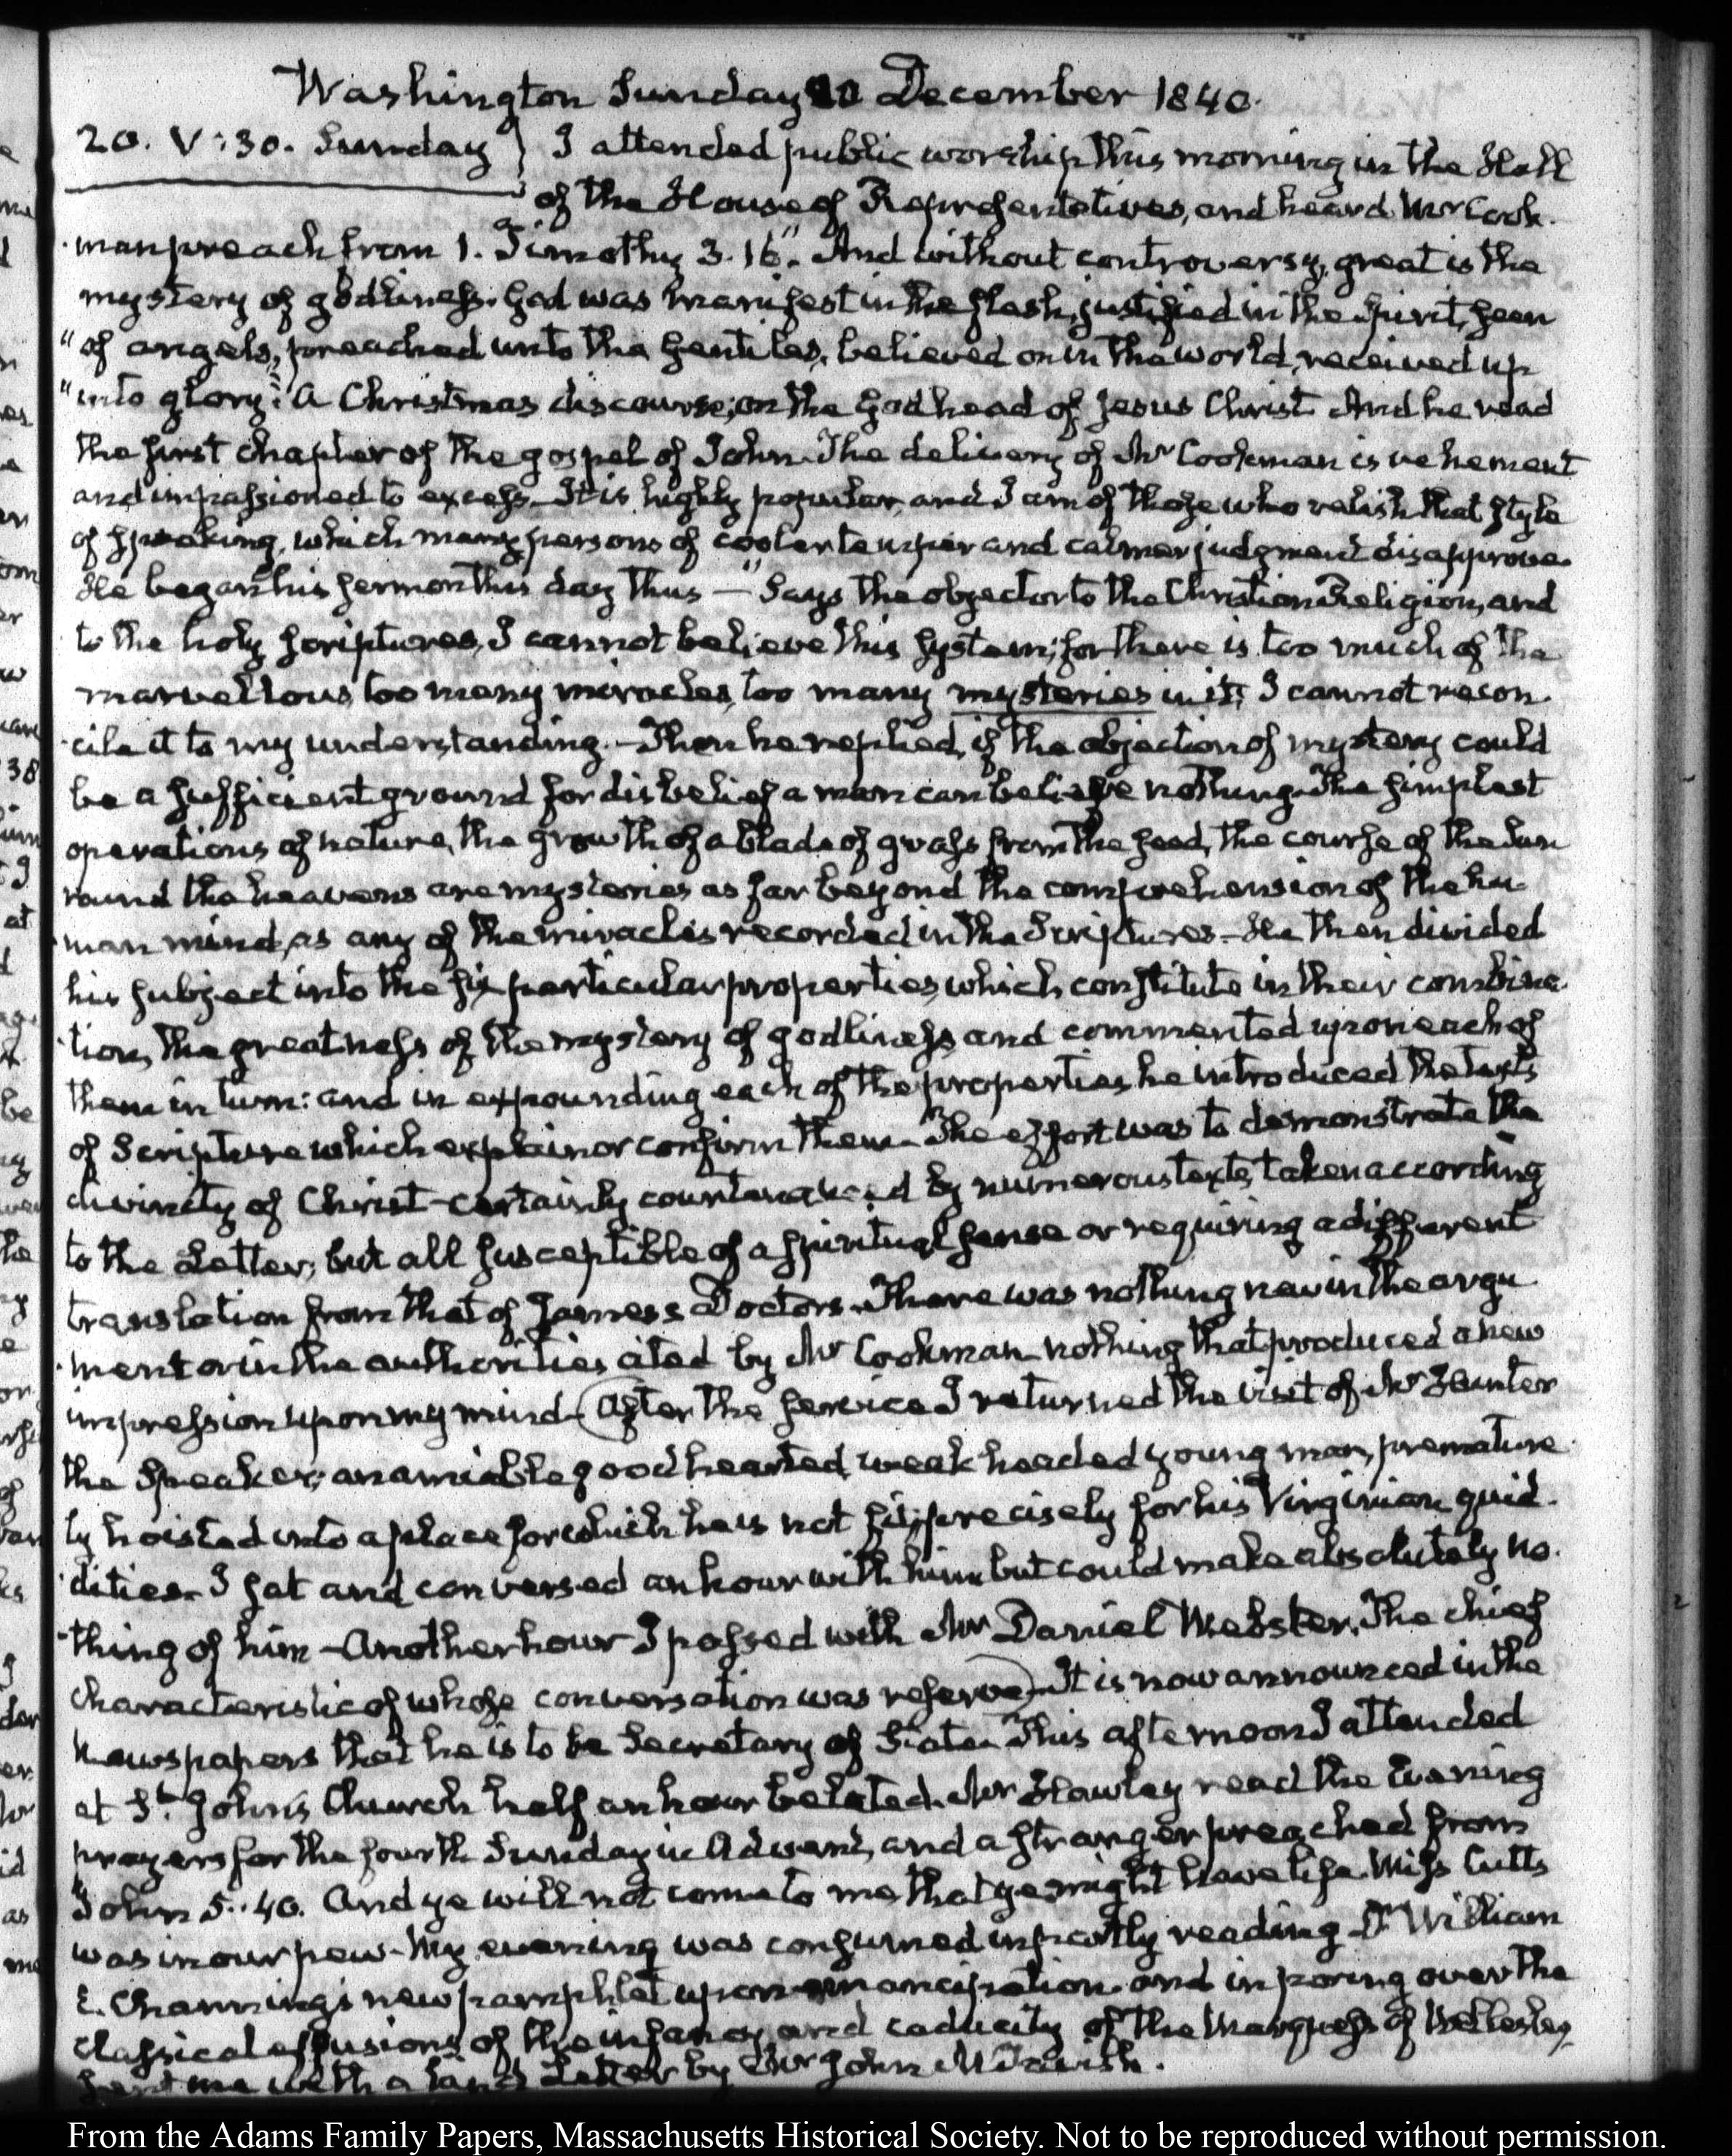 Washington Sunday 20 December 1840.
20. V:30. Sunday } I attended public worship this morning in the Hall
of the House of Representatives, and heard Mr Cook-
man preach from 1. Timothy 3.16. "And without controversy, great is the
mystery of godliness. God was manifest in the flesh, justified in the Spirit, seen
"of angels, preached unto the Gentiles, believed on in the world, received up
"into glory": A Christmas discourse, on the Godhead of Jesus Christ. And he read
the first chapter of the gospel of John. The delivery of Mr Cookman is vehement
and impassioned to excess. It is highly popular, and I am of those who relish that style
of speaking, which many persons of cooler temper and calmer judgment disapprove.
He began his sermon this day thus — "Says the objector to the Christian Religion, and
to the holy Scriptures, I cannot believe this system; for there is too much of the
marvellous, too many miracles, too many mysteries in it; I cannot recon-
cile it to my understanding. — Then he replied, if the objection of mystery could
be a sufficient ground for disbelief a man can believe nothing. The simplest
operations of nature, the growth of a blade of grass from the seed, the course of the Sun
round the heavens are mysteries as far beyond the comprehension of the hu-
man mind, as any of the miracles recorded in the Scriptures. He then divided
his subject into the six particular properties, which constitute in their combina-
tion, the greatness of the mystery of godliness, and commented upon each of
them in turn: and in expounding each of the properties he introduced the texts
of Scripture which explain or confirm them. The effort was to demonstrate the
divinity of Christ — certainly countenanced by numerous texts, taken according
to the Letter; but all susceptible of a spiritual sense or requiring a different
translation from that of James's Doctors. There was nothing new in the argu-
ment or in the authorities cited by Mr Cookman — nothing that produced a new
impression upon my mind — After the service I returned the visit of Mr Hunter
the Speaker; an amiable good hearted, weak headed young man, premature-
ly hoisted into a place for which he is not fit, precisely for his Virginian quid-
dities. I sat and conversed an hour with him but could make absolutely no-
thing of him — Another hour I passed with Mr Daniel Webster. The chief
characteristic of whose conversation was reserve. It is now announced in the
Newspapers that he is to be Secretary of State. This afternoon I attended
at St. John's Church half an hour belated. Mr Hawley read the Evening
prayers for the fourth Sunday in Advent, and a stranger preached from
John 5.40. And ye will not come to me that ye might have life. Miss Cutts
was in our pew. My evening was consumed in partly reading Dr William
E. Channing's new pamphlet upon emancipation and in poring over the
classical effusions of the infancy and caducity of the Marquess of Wellesley,
sent me with a kind Letter by Mr John McTavish.
From the Adams Family Papers, Massachusetts Historical Society. Not to be reproduced without permission.